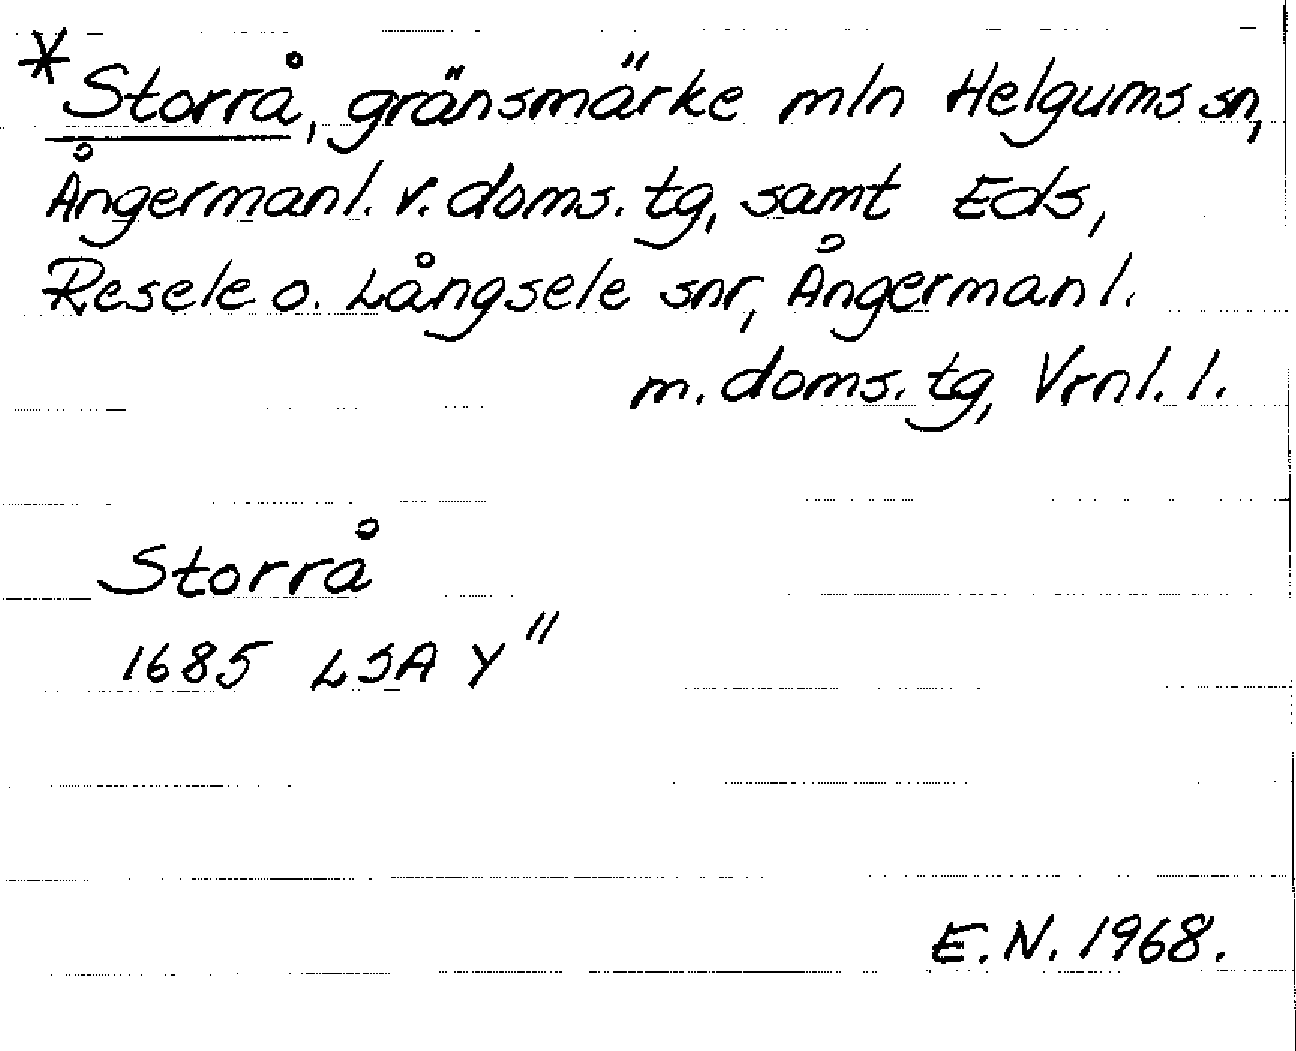 *Storrå, gränsmärke mln Helgums sn,
Ångermanl. v. doms. tg, samt Eds,
Resele o. Långsele snr, Ångermanl.
m. doms. tg, Vrnl. l.
Storrå
1685 LSA Y"
E.N. 1968.